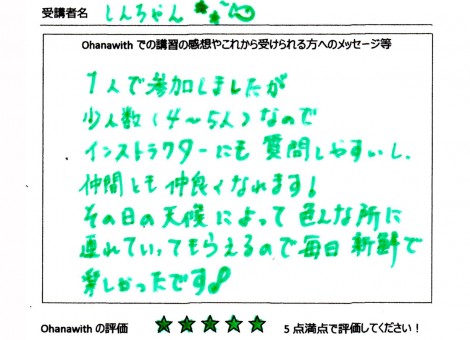 受講者名 しんちゃん
Ohanawith での講習の感想やこれから受けられる方へのメッセージ等
1人で参加しましたが
少人数(4〜5人)なので
インストラクターにも質問しやすいし、
仲間とも仲良くなれます!
その日の天候によって色んな所に
連れていってもらえるので毎日新鮮で
楽しかったです
Ohanawith の評価 ★★★★★ 5点満点で評価してください!